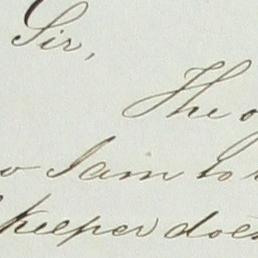 Sir,
The
I am to
keeper does